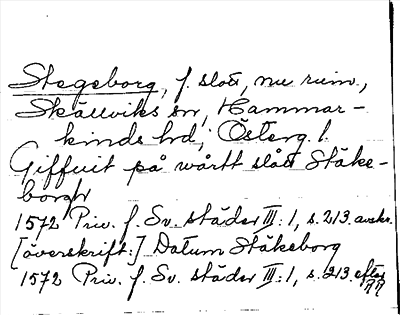 Stegeborg, f. slott, nu ruin.,
Skällviks sn, Hammar-
kinds hd, Österg. l.
Giffuit på wårtt slått Stäke-
borgh
1572 Priv. f. Sv. städer III: 1, s. 213. avskr.
[överskrift:] Datum Stäkeborg
1572 Priv. f. Sv. städer III: 1, s. 213. efter